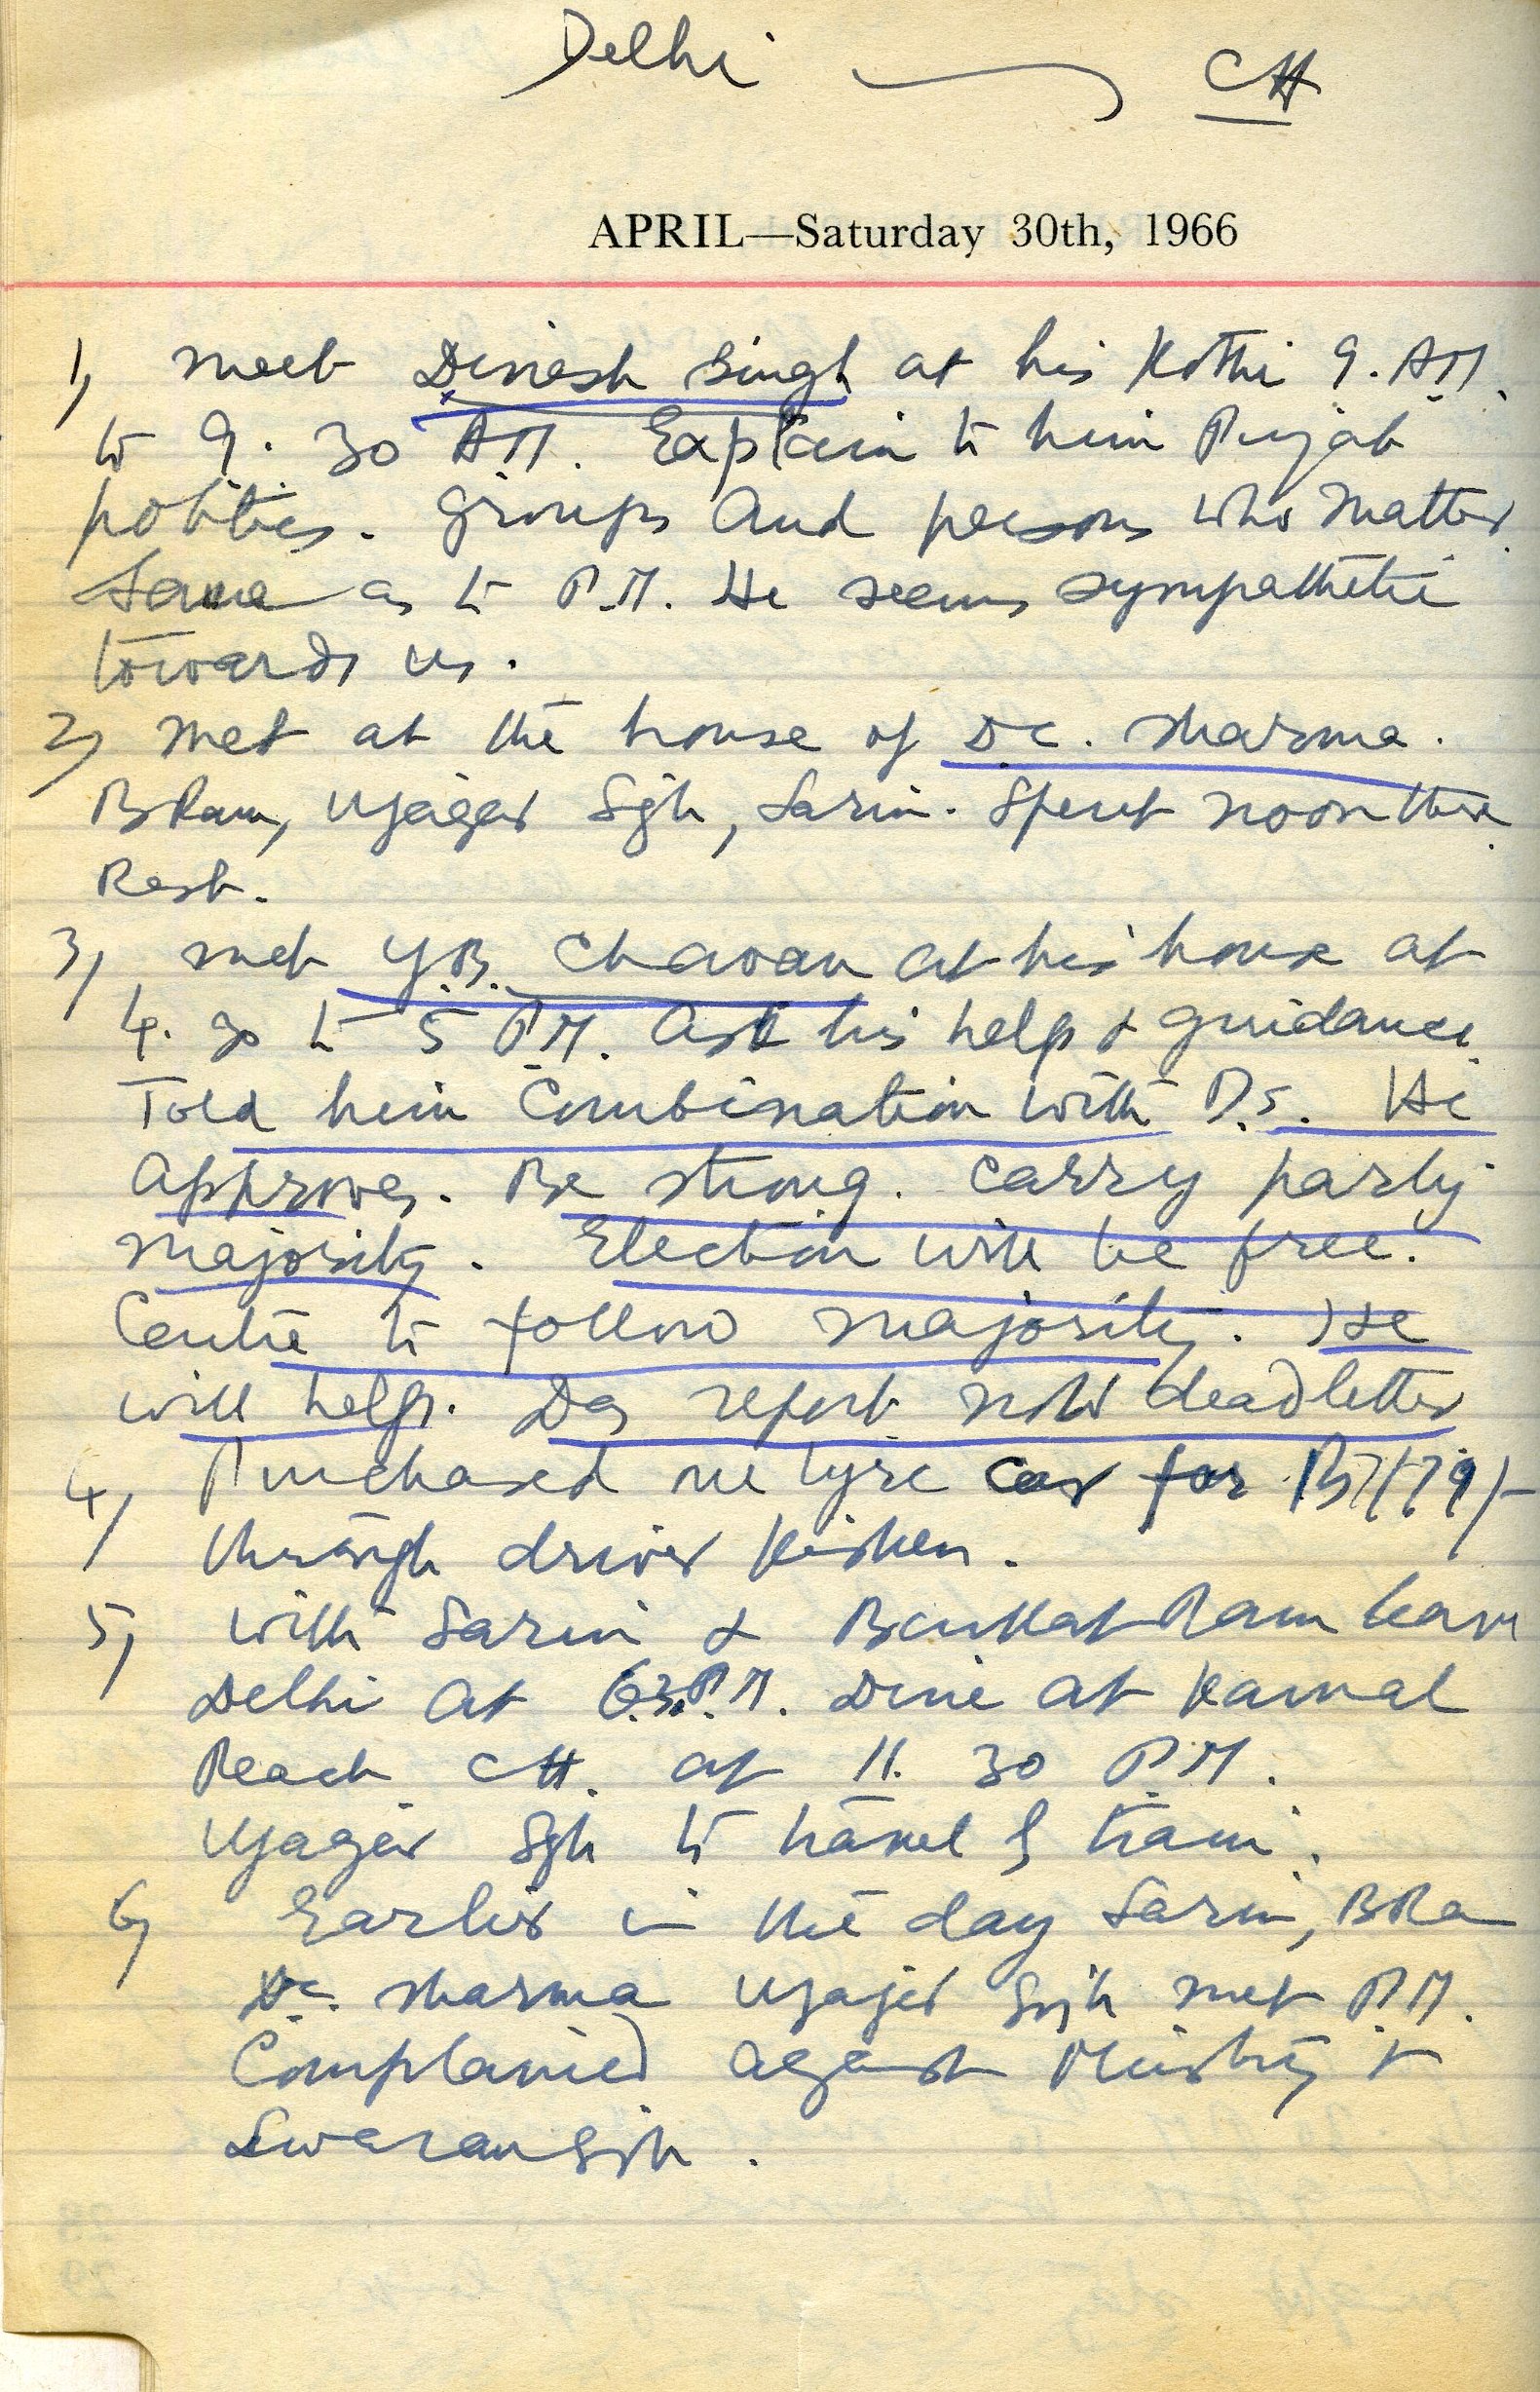 Delhi CH
APRIL—Saturday 30th, 1966
1) meet Dinesh Singh at his Kothi 9. AM.
to 9. 30 AM. Explain to him Punjab
politics. groups and persons who matter.
Same as to P.M. He seems sympathetic
towards us.
2) met at the house of Dc. Sharma.
BRam, Ujagar Sgh, Sarin. Spent noon there.
Rest.
3) met Y.B. Chavan at his house at
4. 30 to 5 P.M. Ask his help & guidance.
Told him Combination with D.S. He
approves. Be strong. Carry party
majority. Election will be free.
Centre to follow majority. He
will help. Das report now dead letter
4) Purchased one tyre car for
through driver Kishen.
5) with Sarin & Bankat Ram leave
Delhi at 6.30 P.M. Dine at Karnal
Reach CH. at 11. 30 P.M.
Ujagar Sgh to travel by train.
6) Earlier in the day Sarin, BRam
Dc. Sharma Ujagar Sgh met P.M.
Complained against Ministry &
Swaran Sgh.